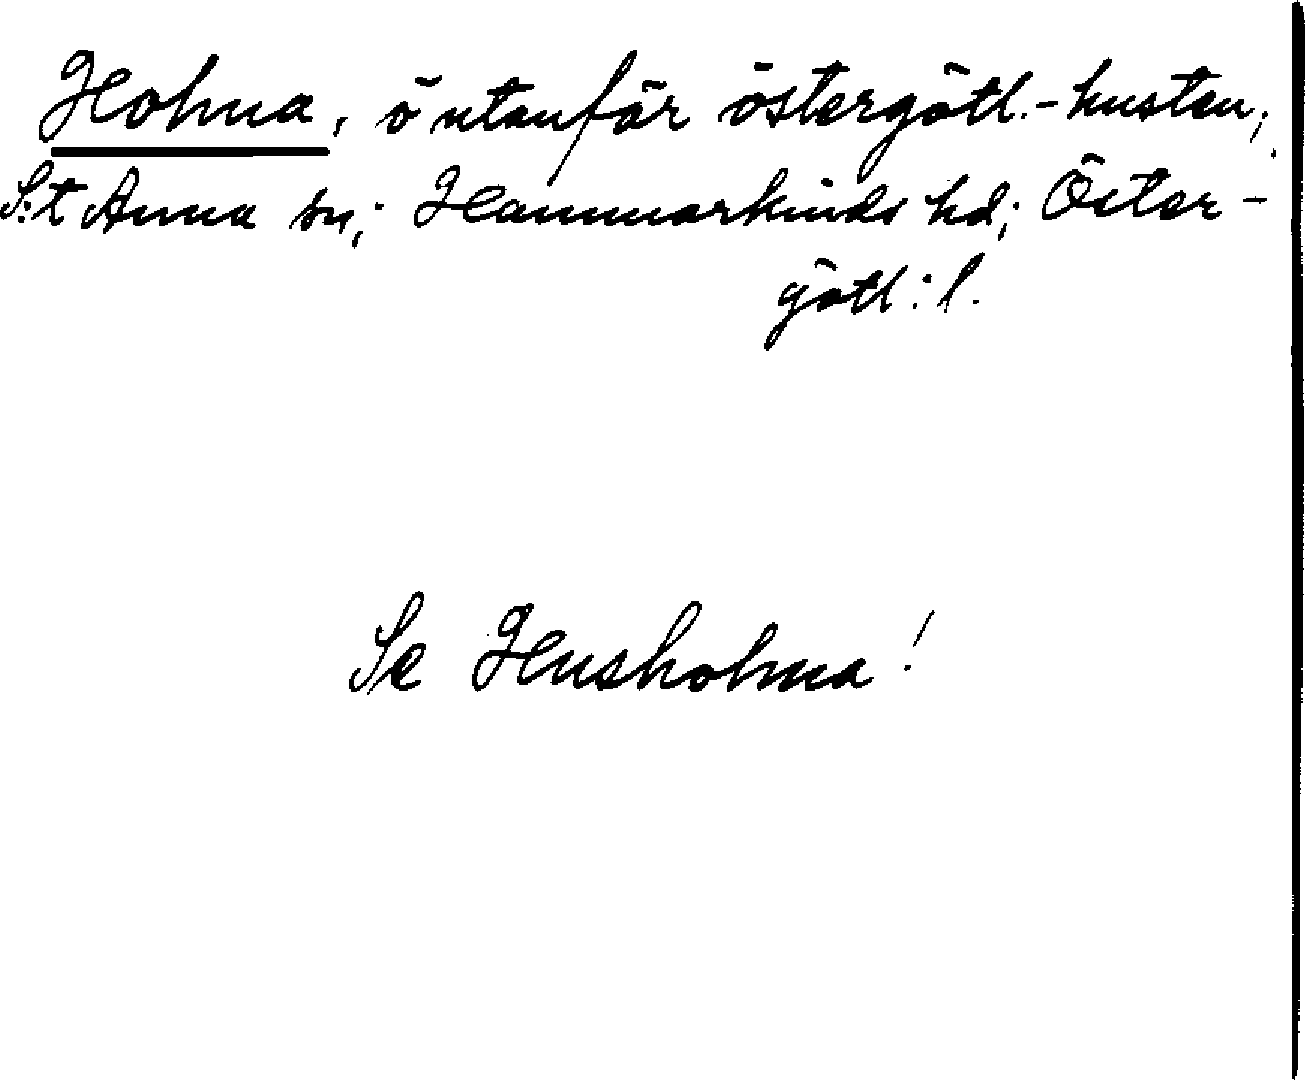 Holma, ö utanför östergötl.-kusten;
S:t Anna sn; Hammarkinds hd; Öster-
götl:l.
Se Husholma!